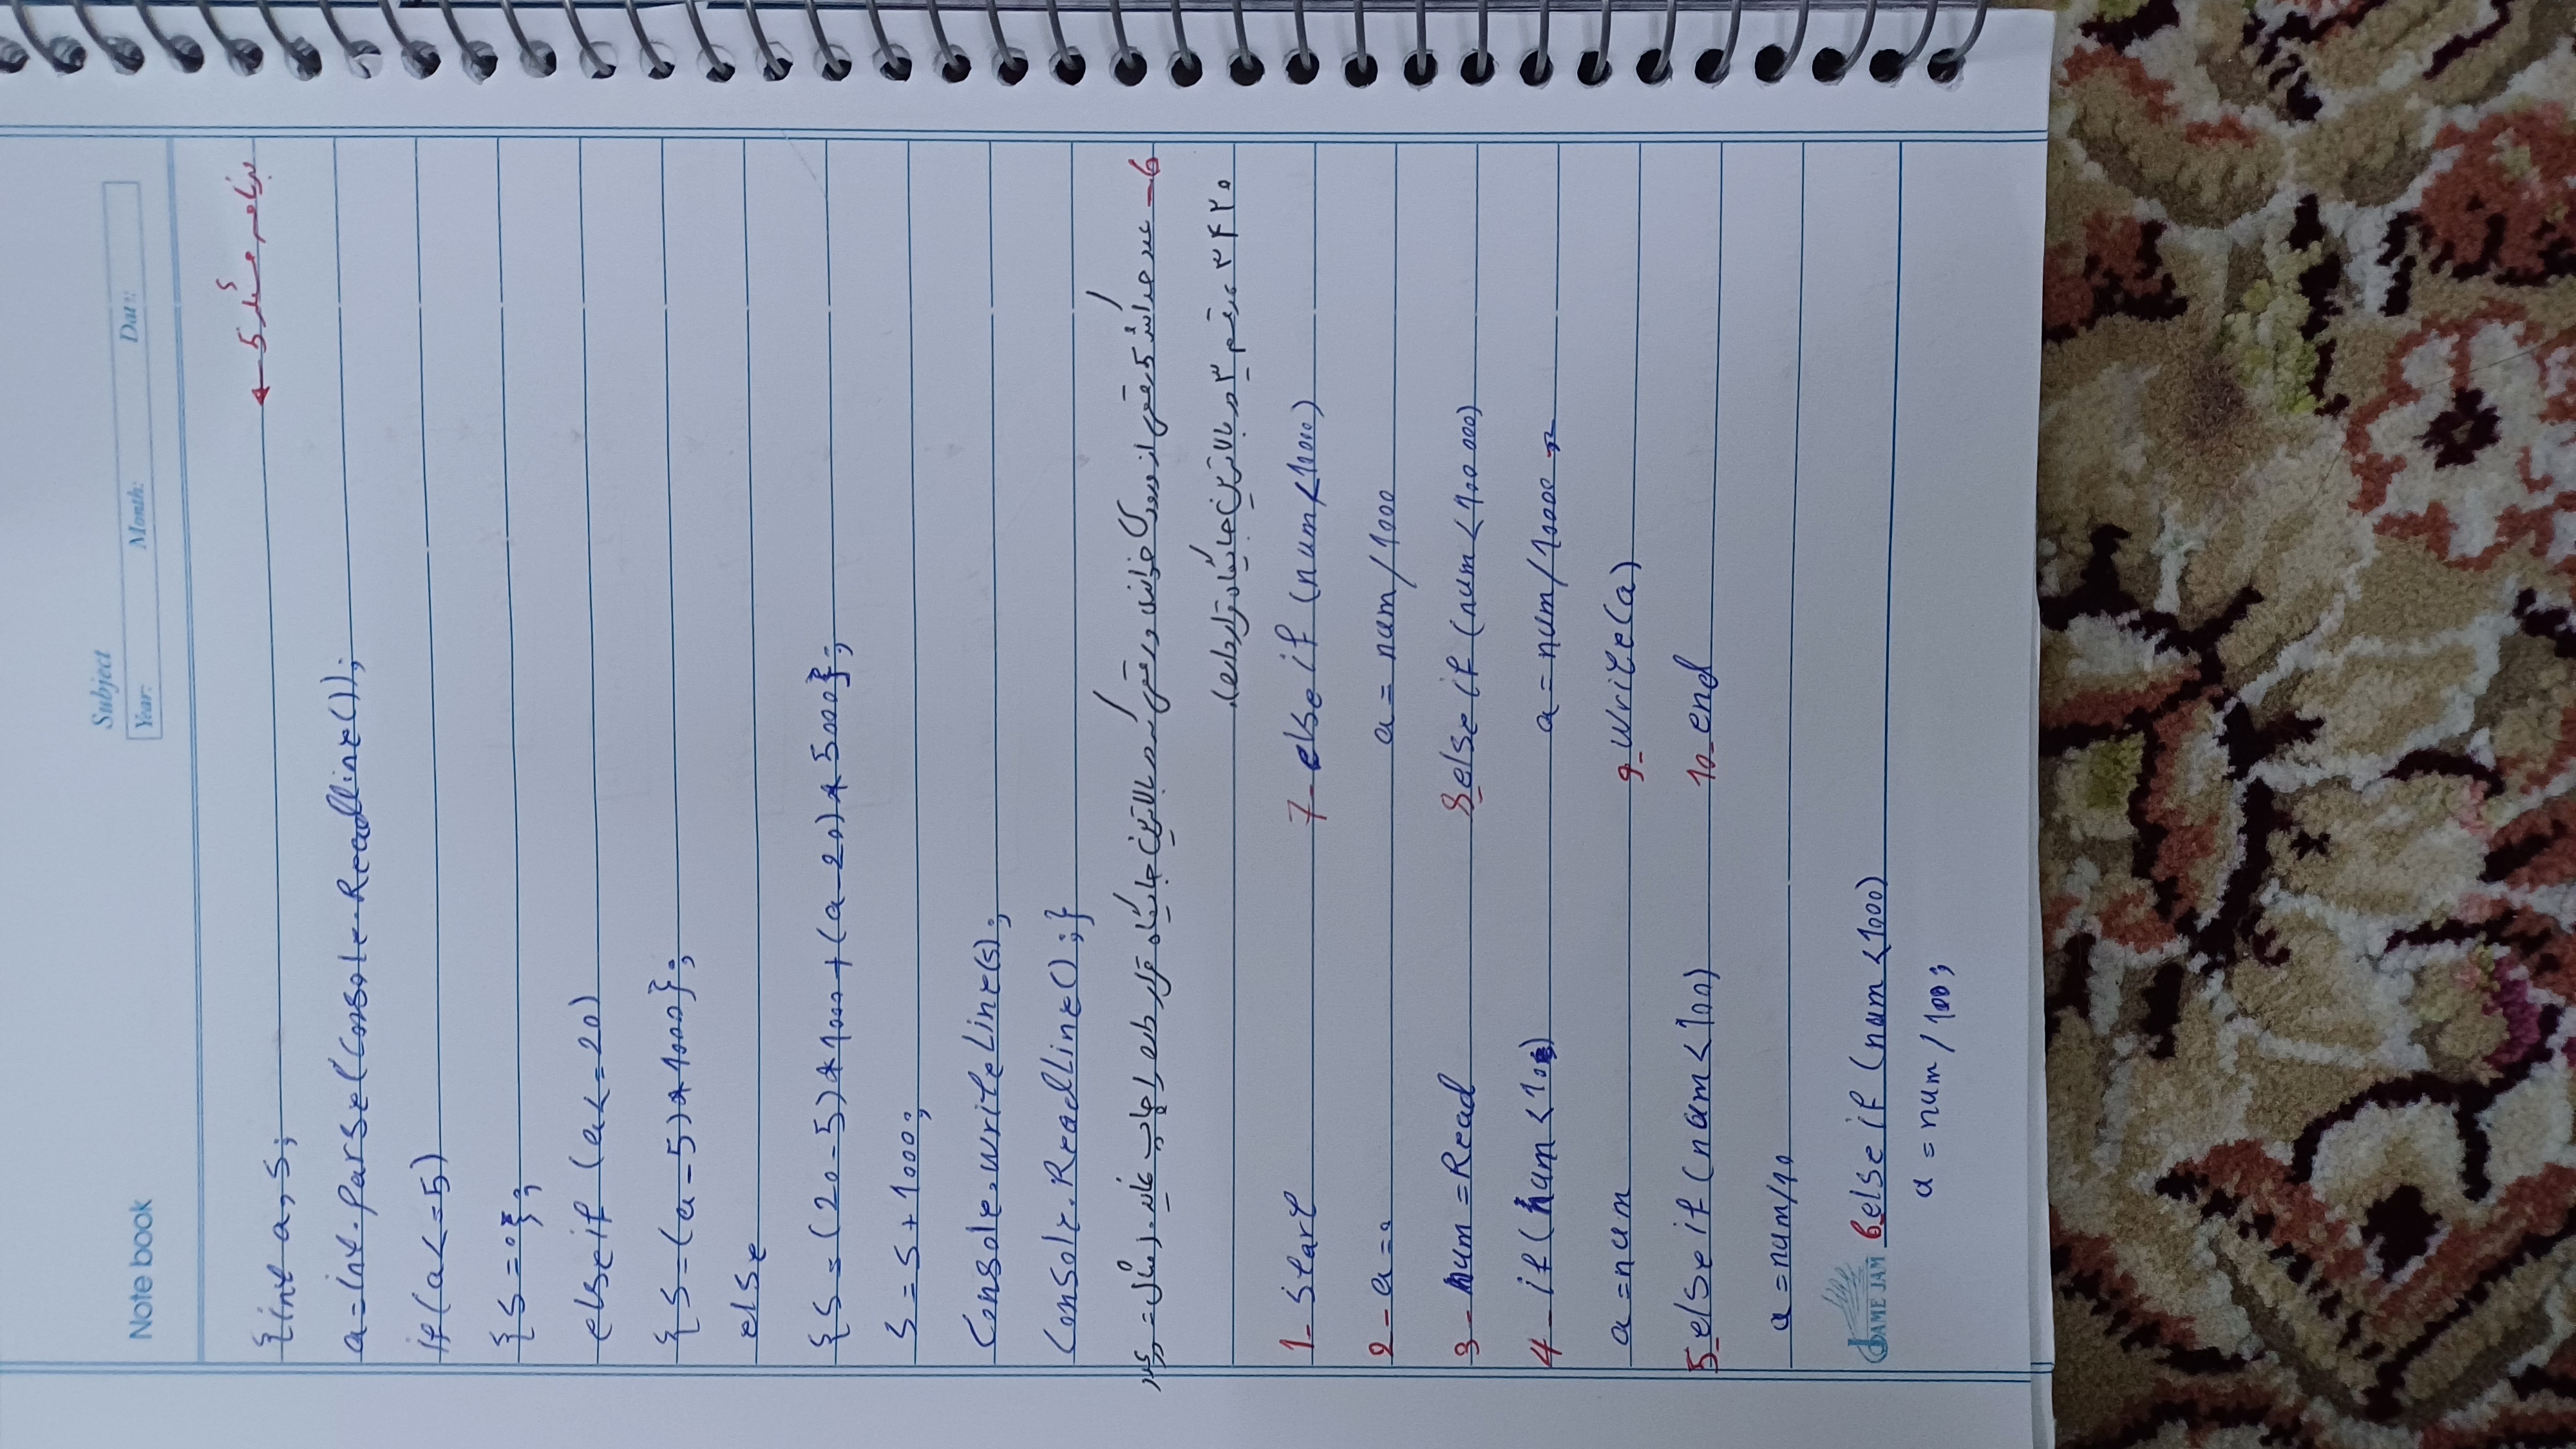 Note book
Subject
Year: Month: Dat:
برنامه مسئله 5
{int a, s;
a=int.Parse(Console.Readline());
if(a<=5)
{s=0};
elseif (a<=20)
{s=(a-5)*1000};
else
{s=(20-5)*1000+(a-20)*5000};
s=s+1000;
Console.writeLine(s);
Console.ReadLine();}
6- عدد حداکثر 5 رقمی از ورودی خوانده و رقمی که در بالاترین جایگاه قرار دارد را چاپ نماید. (مثال= در عدد
۳۴۲۰ رقم ۳ در بالاترین جایگاه قرار دارد).
1- Start
2- a=0
3- num=Read
4- if(num<10)
a=num
5- else if(num<100)
a=num/10
6 else if (num<1000)
a=num/100;
7- else if (num<10000)
a=num/1000
8 else if (num<100000)
a=num/10000
9- write(a)
10- end
DAME JAM